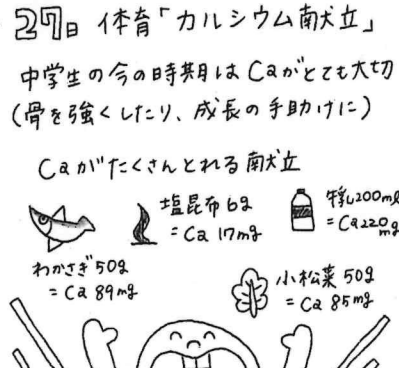 27日 体育「カルシウム献立」
中学生の今の時期はCaがとても大切
(骨を強くしたり、成長の手助けに)
Caがたくさんとれる献立
塩昆布6g
=Ca 17mg
牛乳200ml
=Ca220mg
わかさぎ50g
=Ca 89mg
小松菜 50g
=Ca 85mg